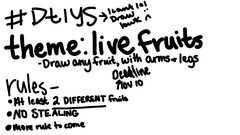 #DTIYS
theme: live fruits
-Draw any fruit, with arms + legs
Deadline
Nov 10
rules-
• At least 2 DIFFERENT fruits
• NO STEALING
• More rule to come